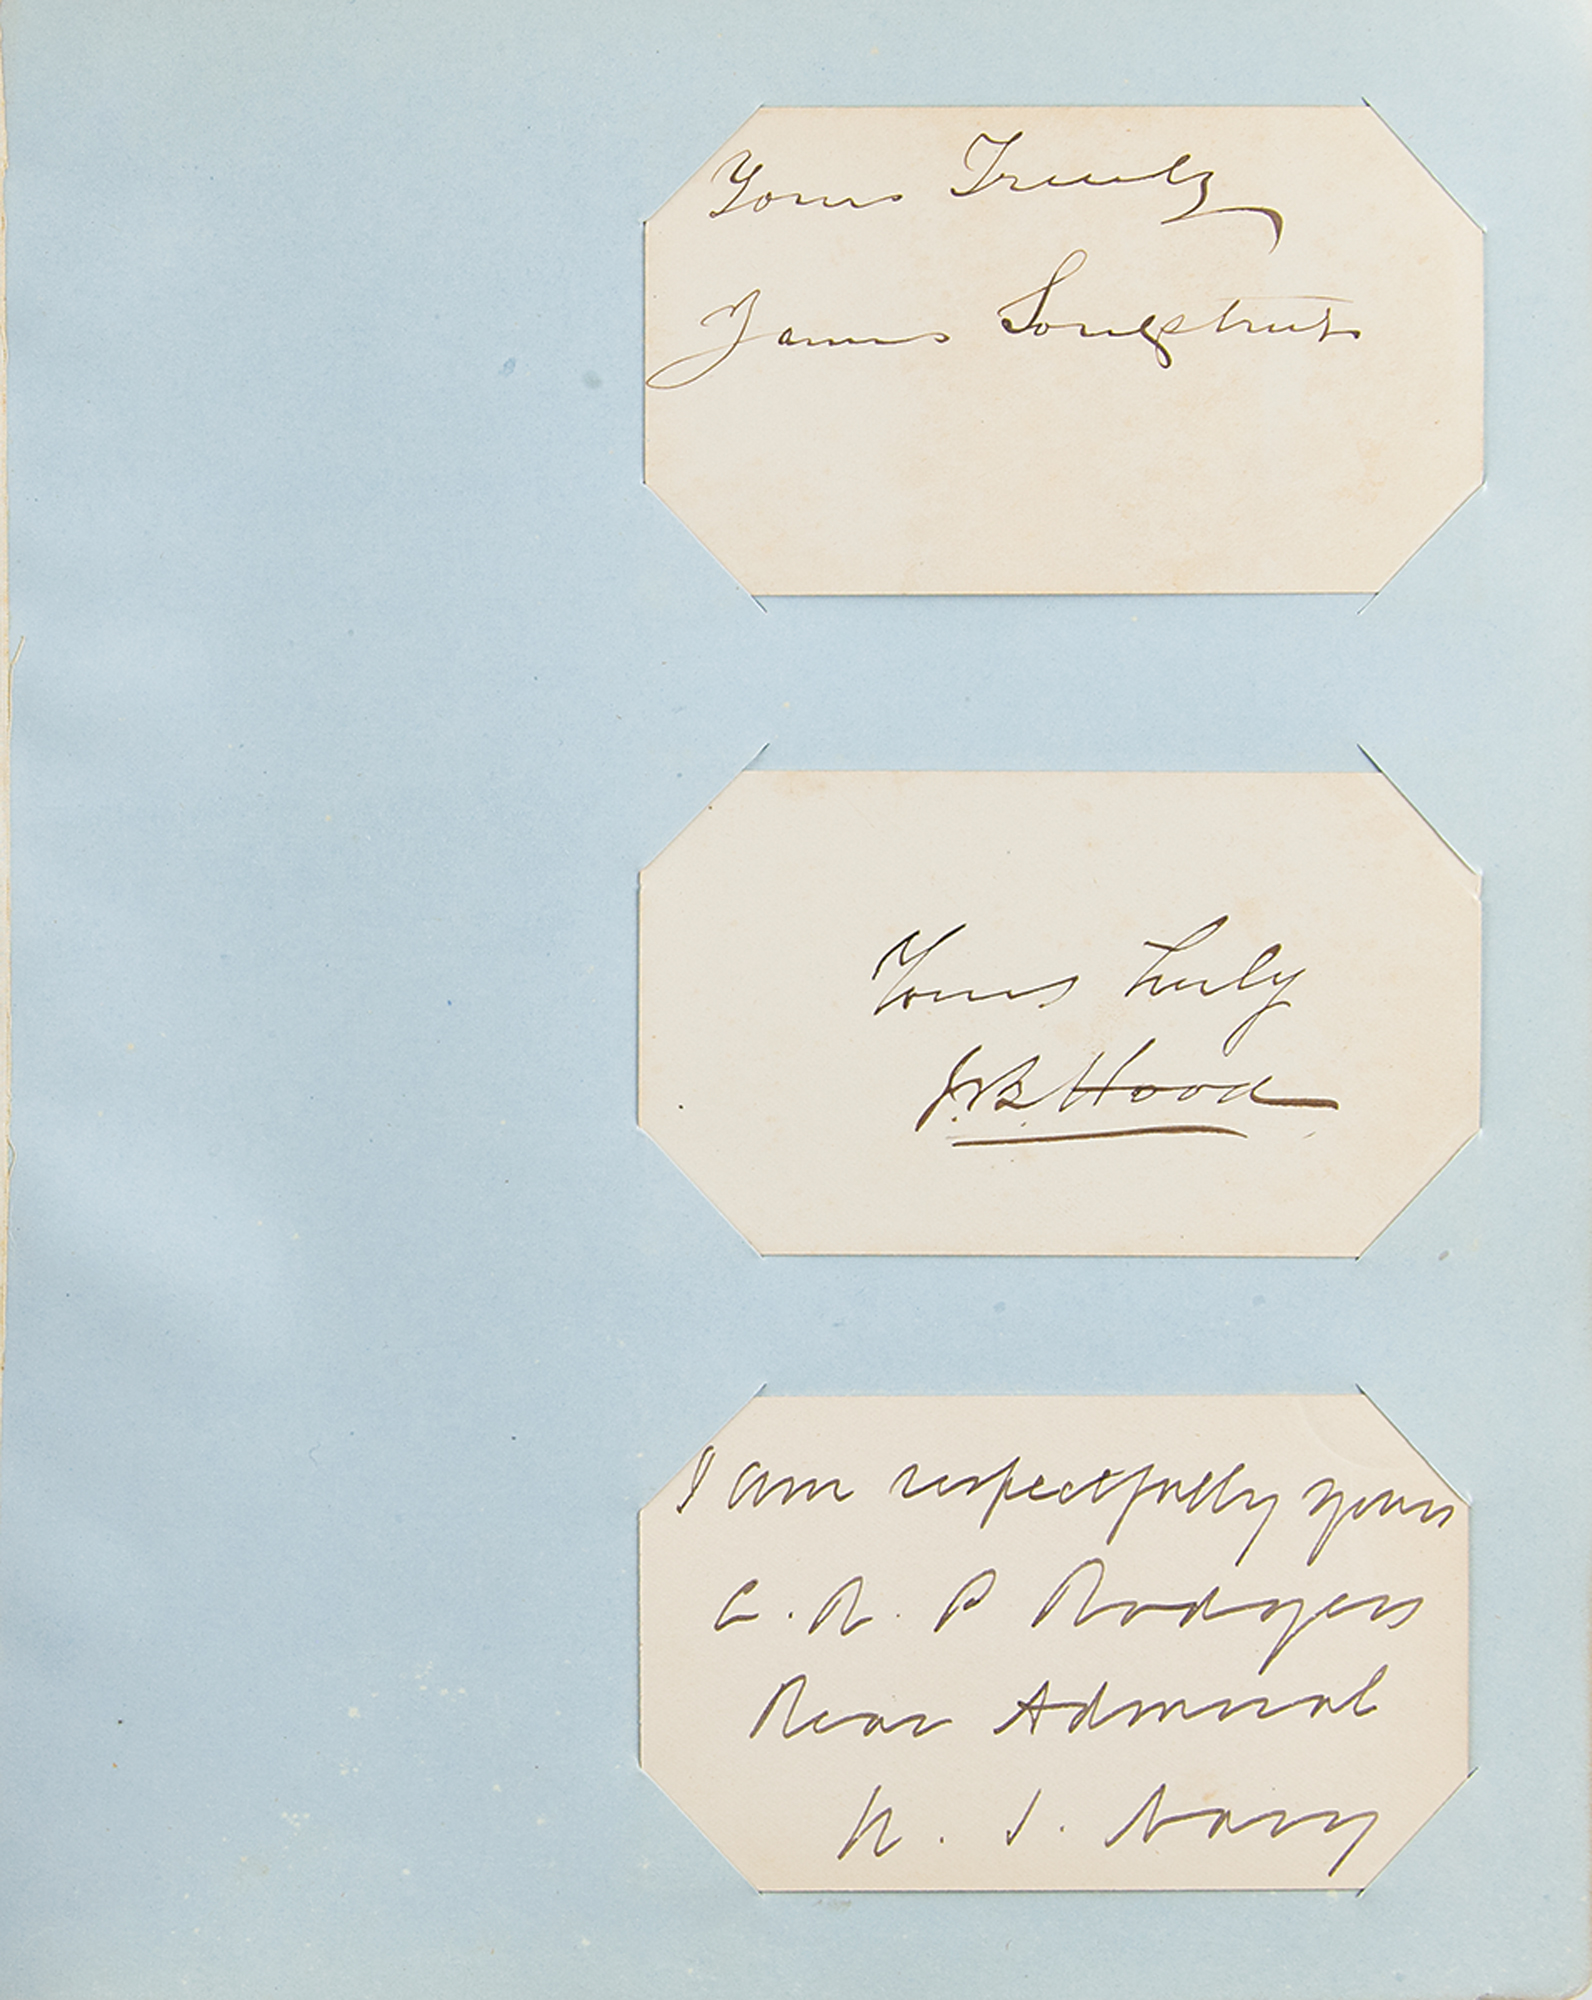 Yours Truly
James Longstreet
Yours truly
J.B. Hood
I am respectfully yours
C. R. P Rodgers
Rear Admiral
U. S. Navy